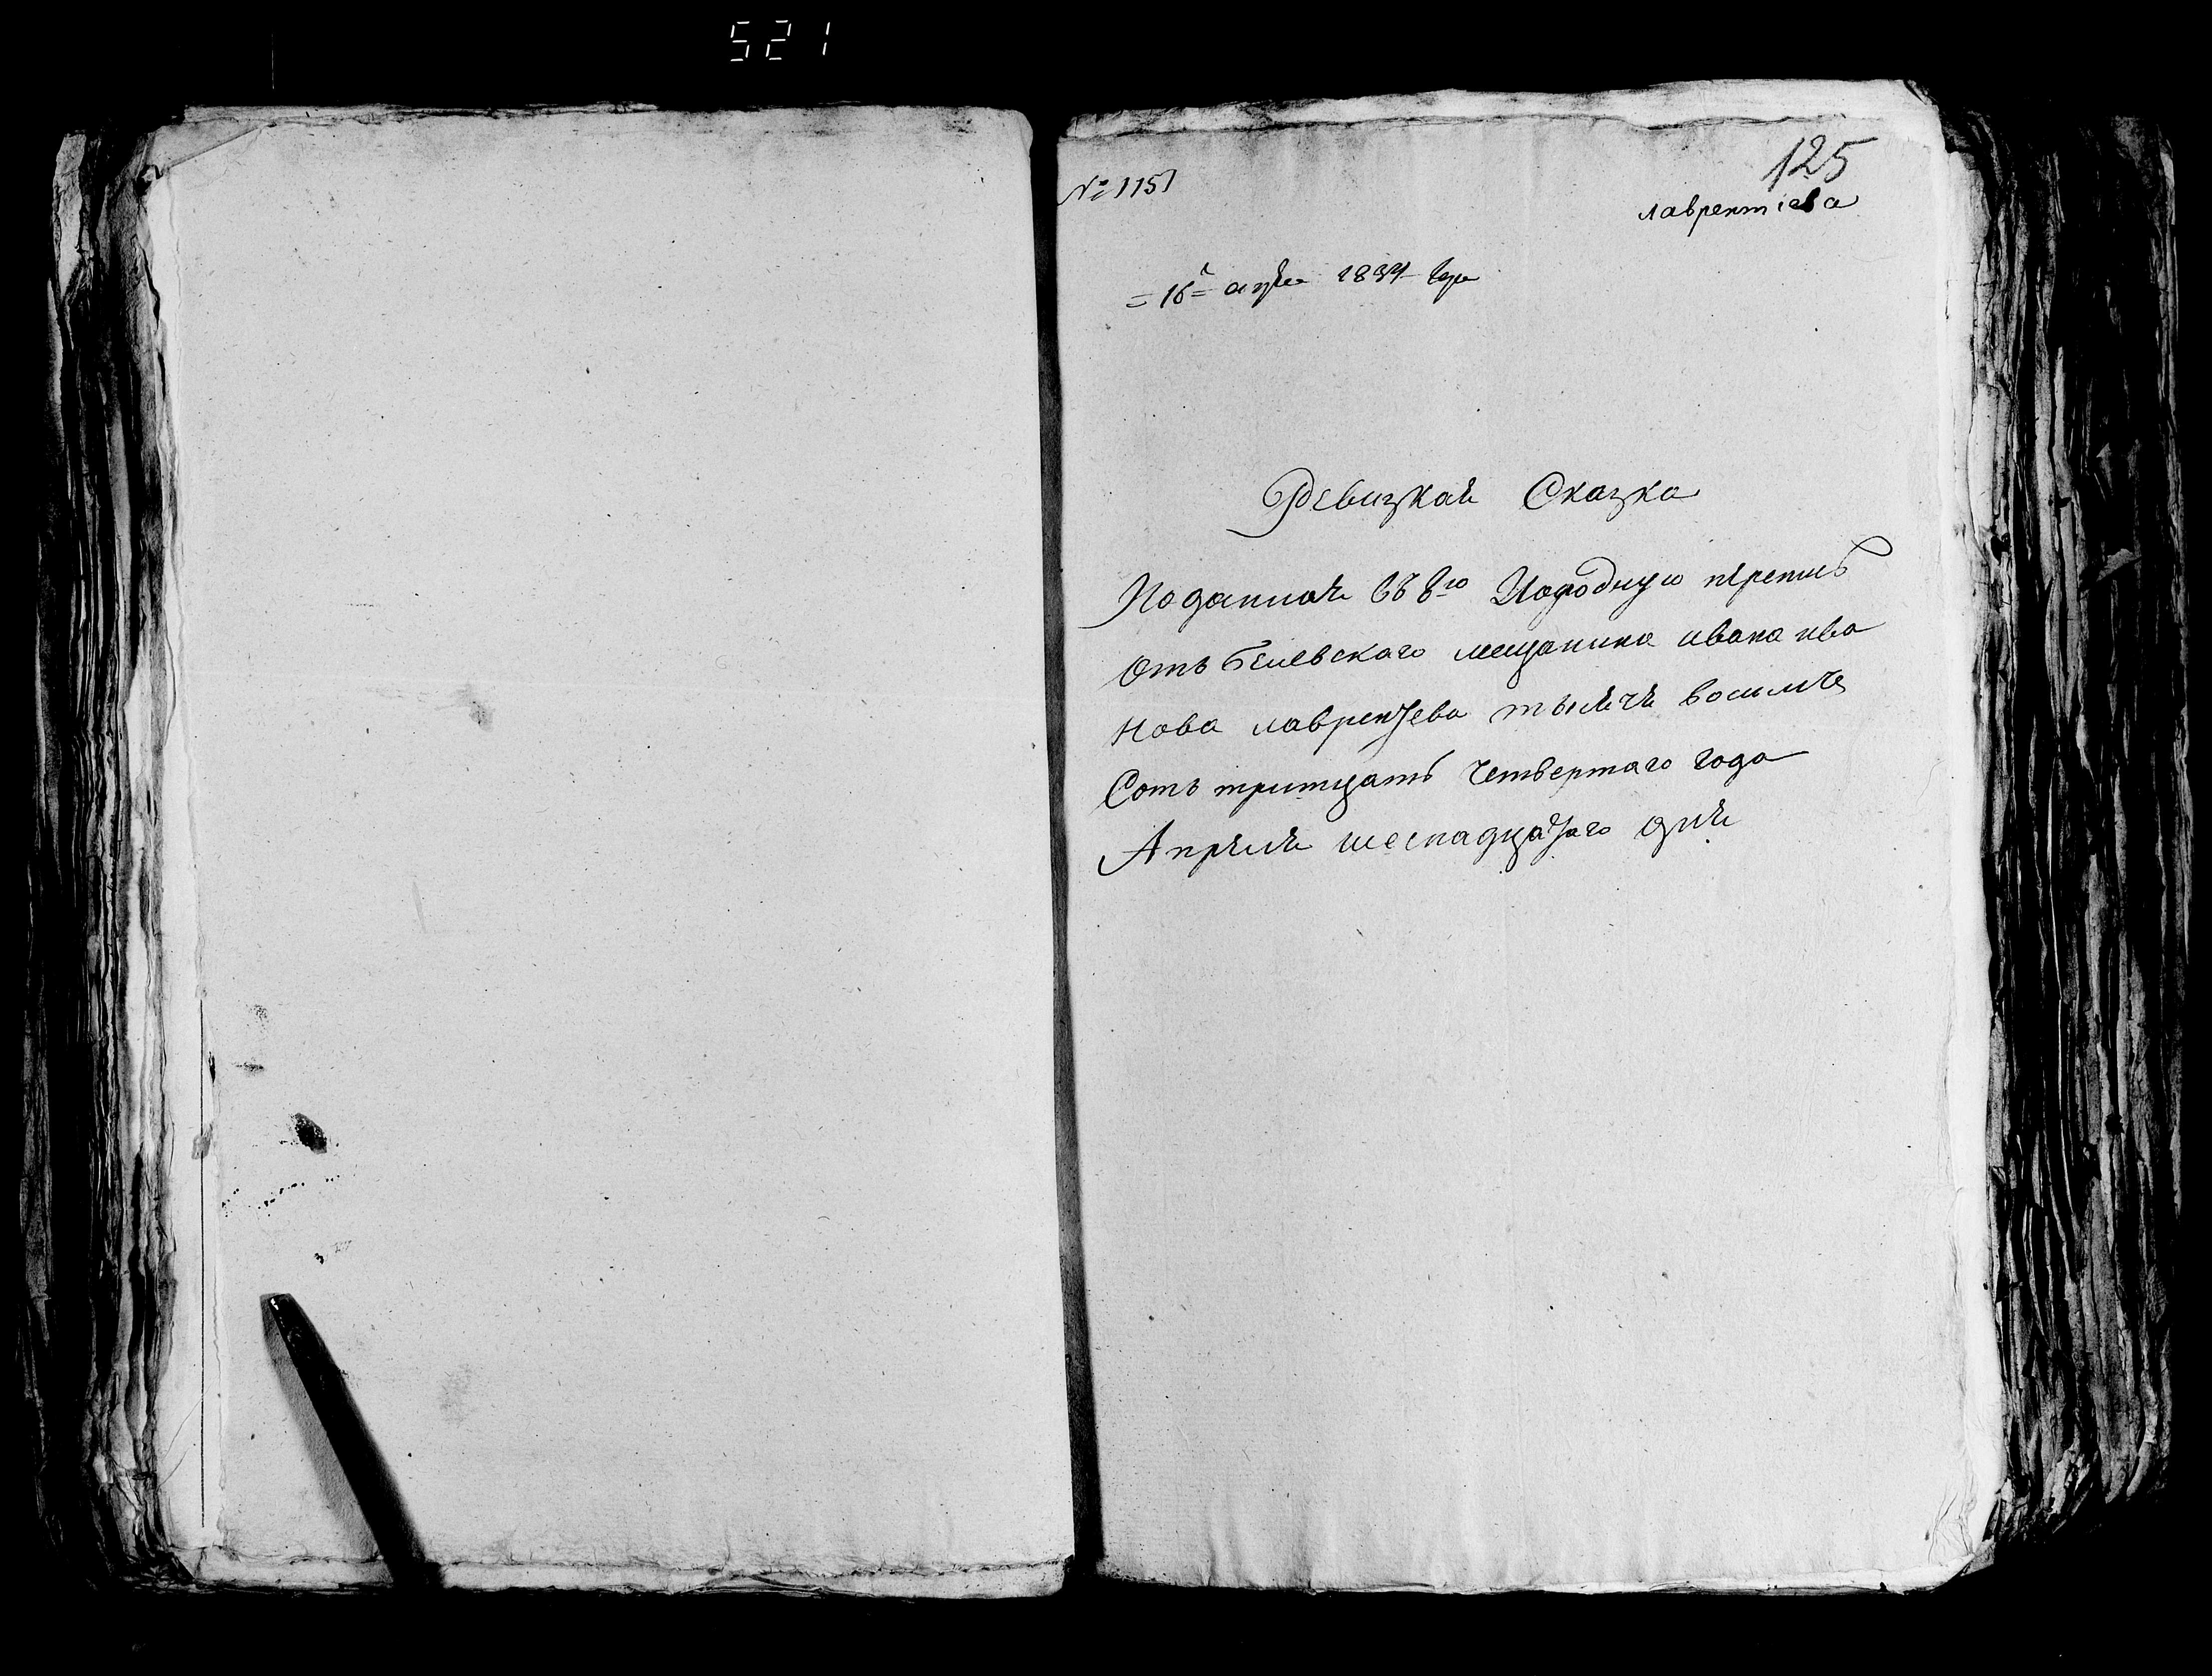 521
125
№ 1151
лаврентiева
=16= апреля 1834 года
Ревизкаѣ Сказка
Поданнаѣ въ 8ю Народную перепись
Отъ белевскаго мещанина ивана ива
нова лаврентева тысѣчѣ восимъ
Сотъ тритцать четвертаго года
Апрѣлѣ шеснадцатаго днѣ